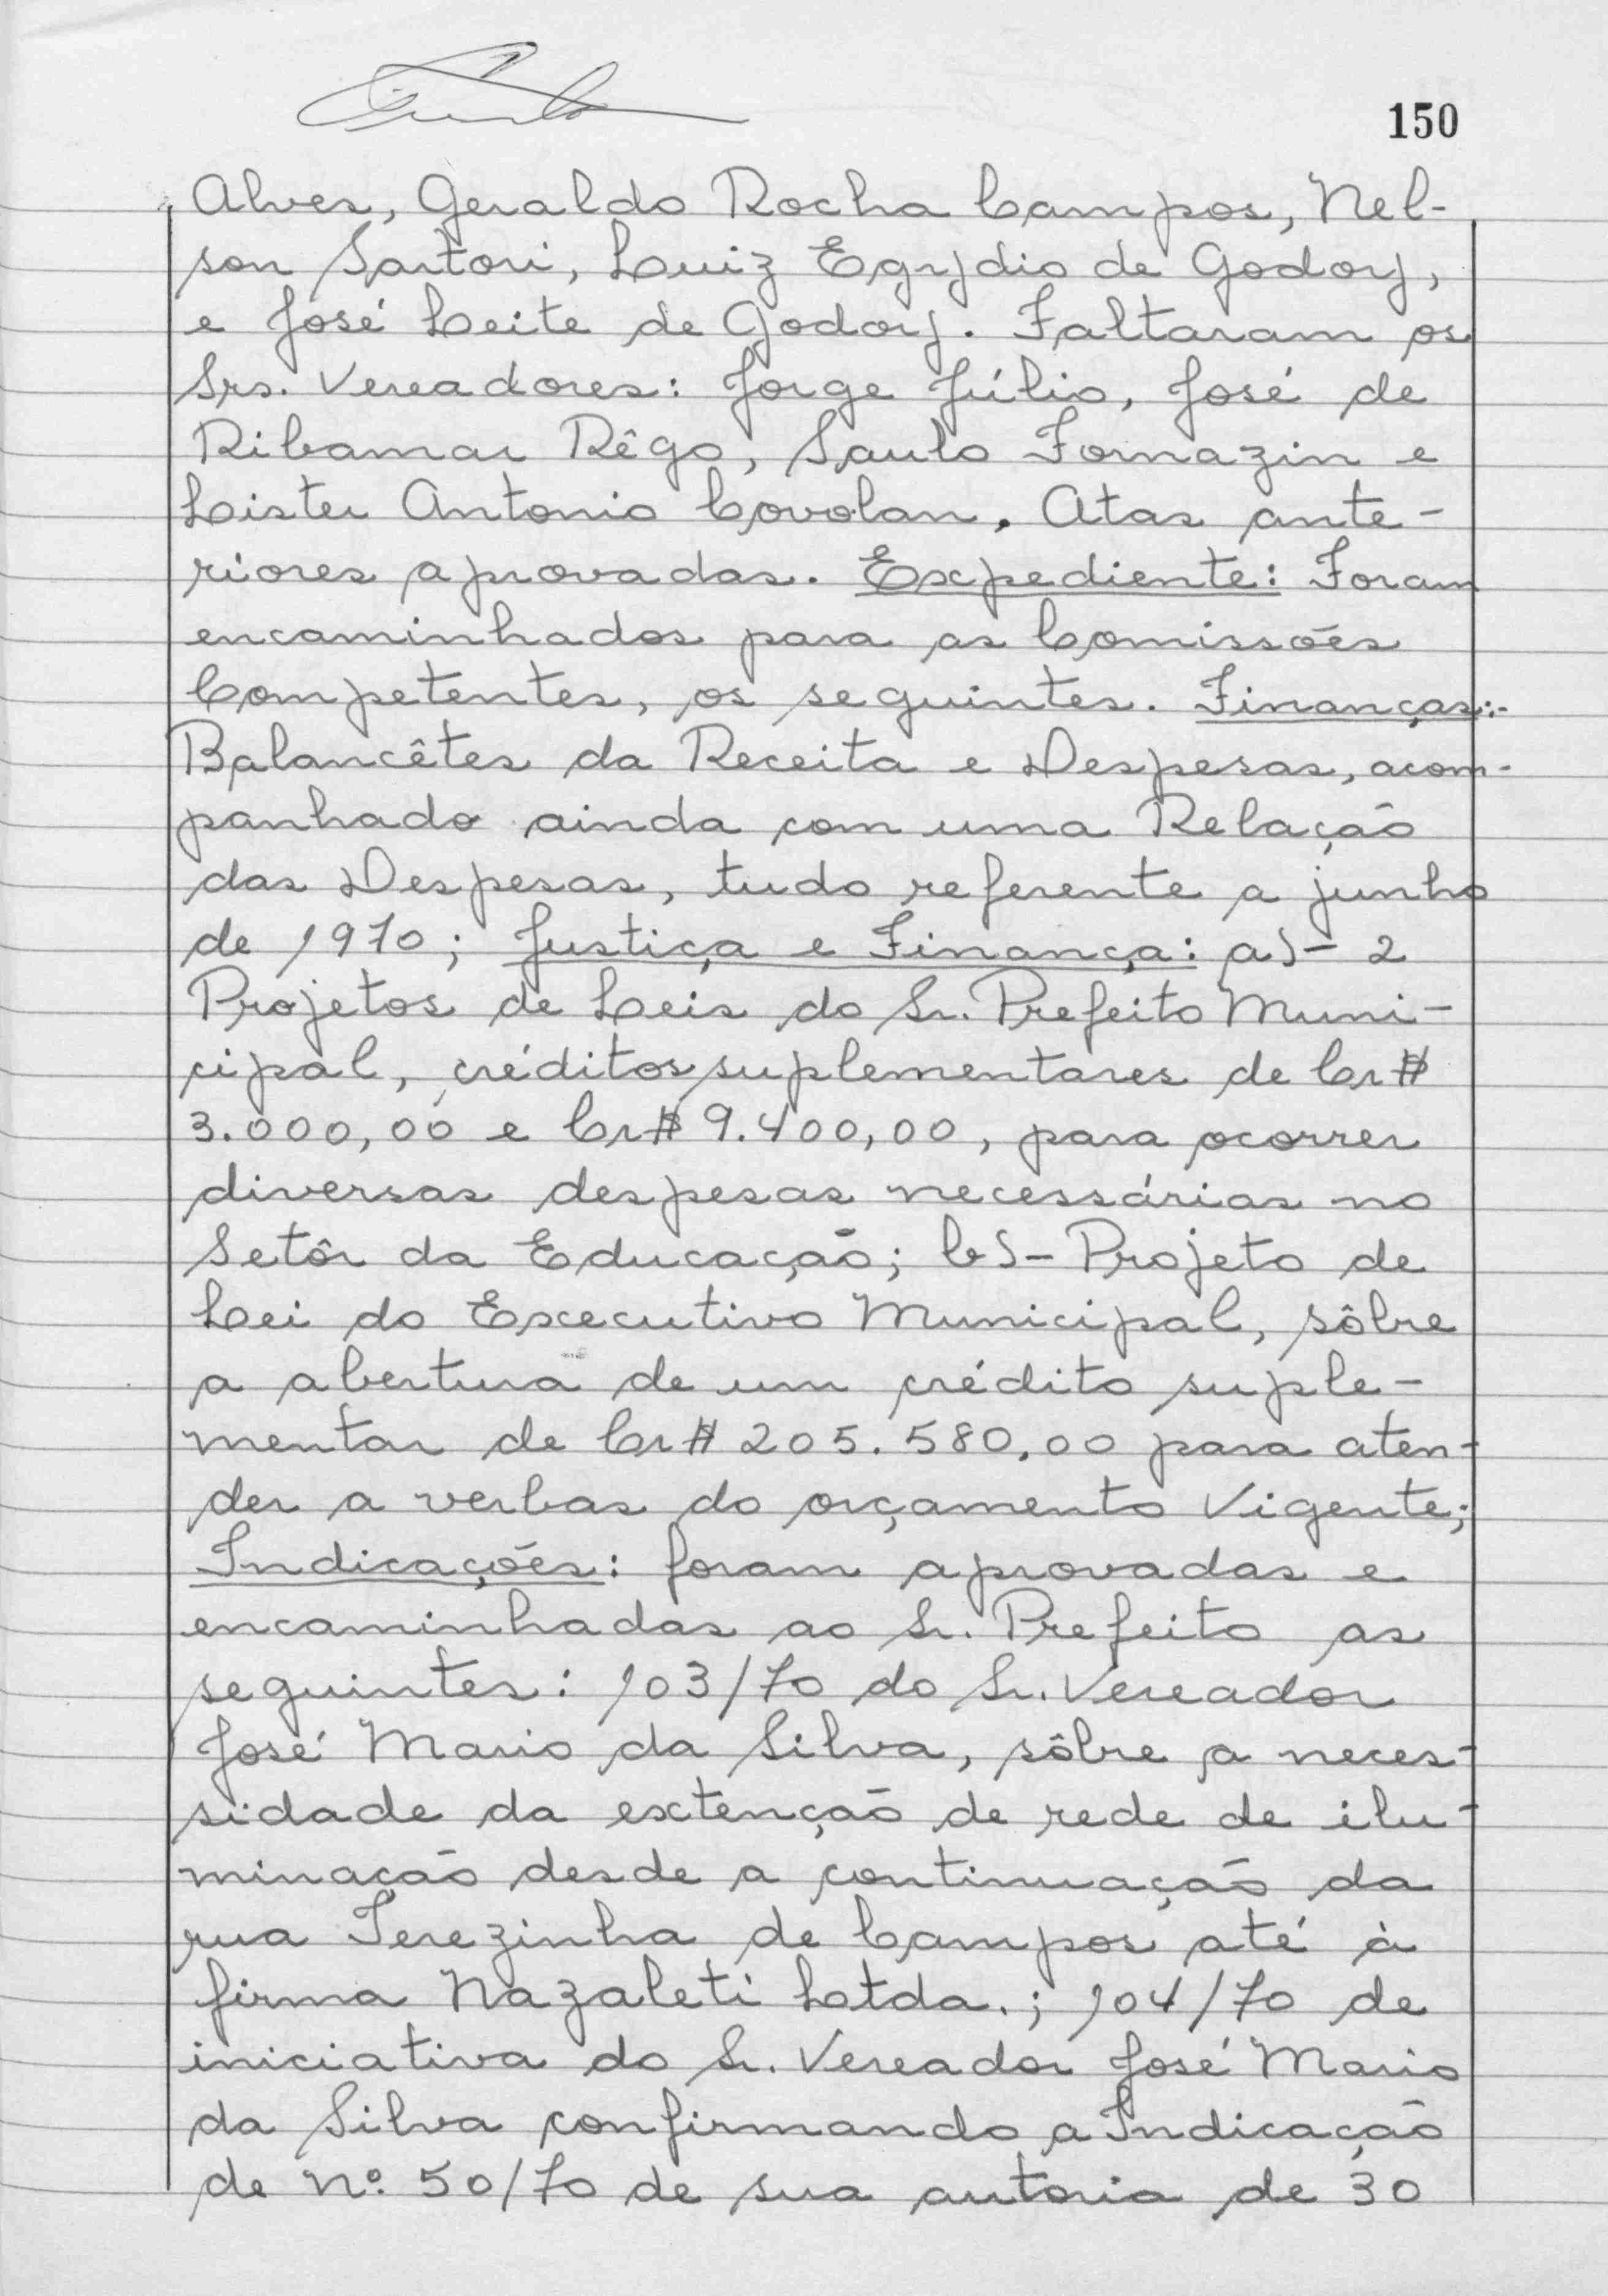 150
Alves, Geraldo Rocha Campos, Nel-
son Sartori, Luiz Egydio de Godoy,
e José Leite de Godoy. Faltaram os
Srs. Vereadores: Jorge Júlio, José de
Ribamar Rêgo, Saulo Fornazin e
Lister Antonio Covolan. Atas ante-
riores aprovadas. Expediente: Foram
encaminhados para as Comissões
Competentes, os seguintes. Finanças:-
Balancêtes da Receita e Despesas, acom-
panhado ainda com uma Relação
das Despesas, tudo referente a junho
de 1970; Justiça e Finança: a)- 2
Projetos de Leis do Sr. Prefeito Muni-
cipal, créditos suplementares de Cr$
3.000,00 e Cr$ 9.400,00, para ocorrer
diversas despesas necessárias no
Setôr da Educação; b)- Projeto de
Lei do Executivo Municipal, sôbre
a abertura de um crédito suple-
mentar de Cr$ 205.580,00 para aten-
der a verbas do orçamento Vigente;
Indicações: foram aprovadas e
encaminhadas ao Sr. Prefeito as
seguintes: 103/70 do Sr. Vereador
José Mario da Silva, sôbre a neces-
sidade da extenção de rede de ilu-
minação desde a continuação da
rua Terezinha de Campos até à
firma Nazaleti Ltda.; 104/70 de
iniciativa do Sr. Vereador José Mario
da Silva confirmando a Indicação
de nº 50/70 de sua autoria de 30